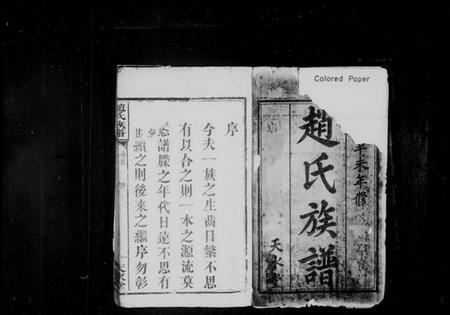 Colored Paper
辛未年修
趙氏族譜
天水堂
序
今夫一族之生齒日繁不思
有以合之則一本之源流莫
悉譜牒之年代日遠不思有
以續之則後來之繼序勿彰
趙氏族譜
卷首
序
天水堂